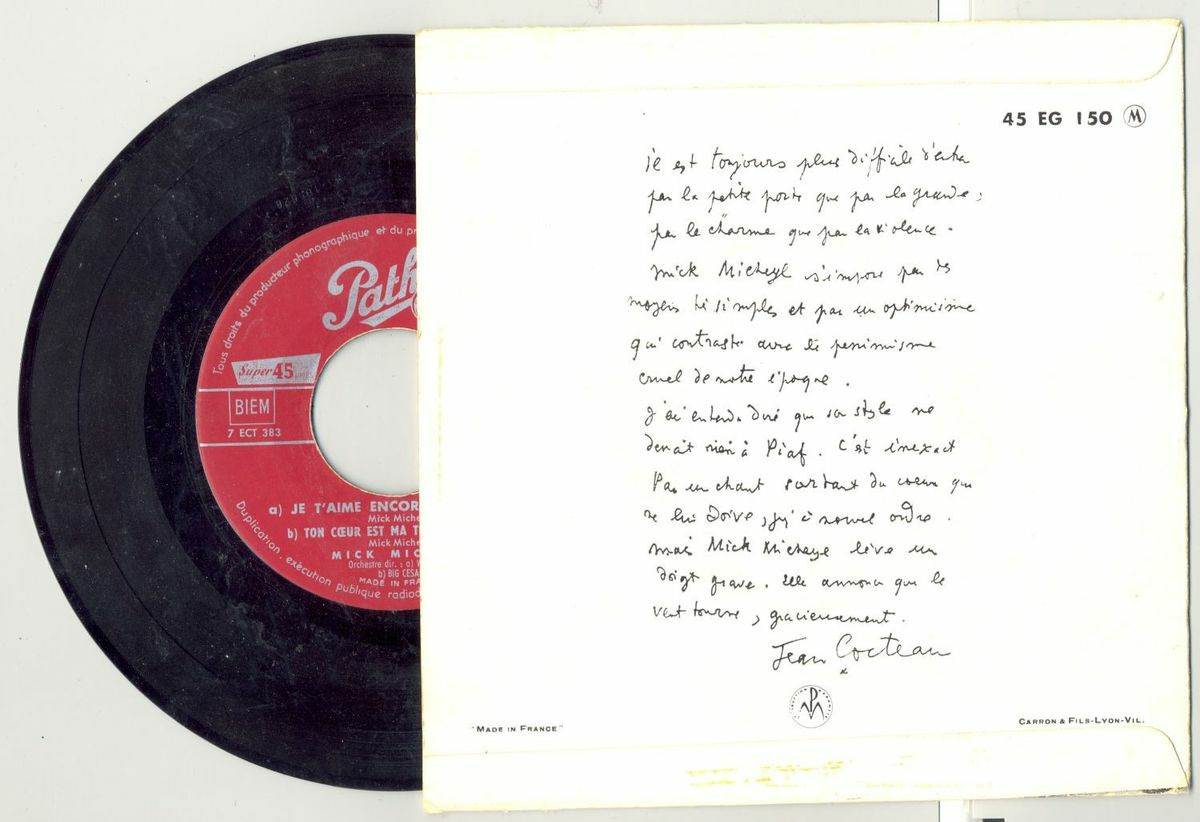 Tous droits du producteur phonographique et du pr
Path
Super 45
BIEM
7 ECT 383
a) JE T'AIME ENCOR
Mick Miche
b) TON CŒUR EST MA T
Mick Miche
MICK MIC
Orchestre dir. : a) 
b) BIG CESA
MADE IN FRA
Duplication, exécution publique radiod
45 EG 150 M
il est toujours plus difficile d'entrer
par la petite porte que par la grande ;
par le charme que par la violence .
Mick Micheyl s'impose par des
moyens si simples et par un optimisme
qui contraste avec le pessimisme
cruel de notre époque .
J'ai entendu dire que son style ne
devait rien à Piaf . C'est inexact
Pas un chant sortant du coeur qui
ne lui doive , jusqu'à nouvel ordre .
mais Mick Micheyl lève un
doigt grave . Elle annonce que le
vent tourne , gracieusement .
Jean Cocteau
"MADE IN FRANCE"
CARRON & FILS-LYON-VIL.